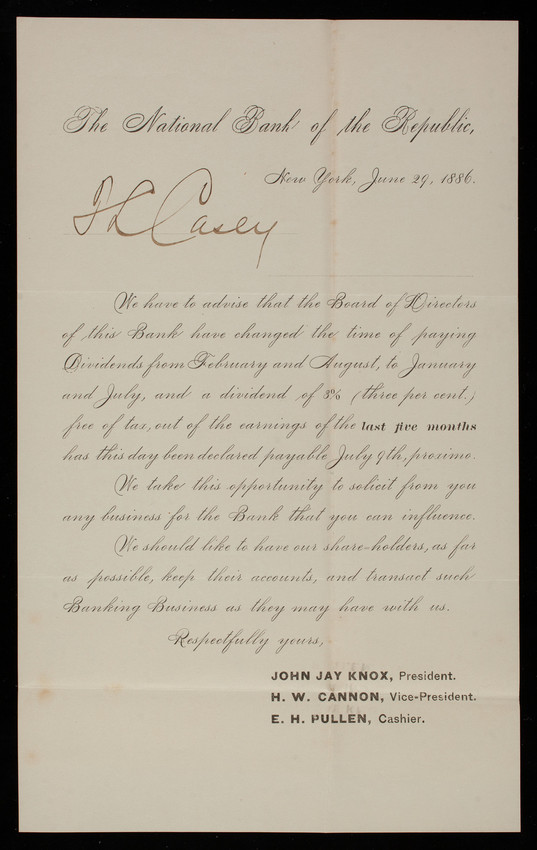 The National Bank of the Republic,
New York, June 29, 1886.
T L Casey
We have to advise that the Board of Directors
of this Bank have changed the time of paying
Dividends from February and August, to January
and July, and a dividend of 3% (three per cent.)
free of tax, out of the earnings of the last five months
has this day been declared payable July 9th, proximo.
We take this opportunity to solicit from you
any business for the Bank that you can influence.
We should like to have our share-holders, as far
as possible, keep their accounts, and transact such
Banking Business as they may have with us.
Respectfully yours,
JOHN JAY KNOX, President.
H. W. CANNON, Vice-President.
E. H. PULLEN, Cashier.